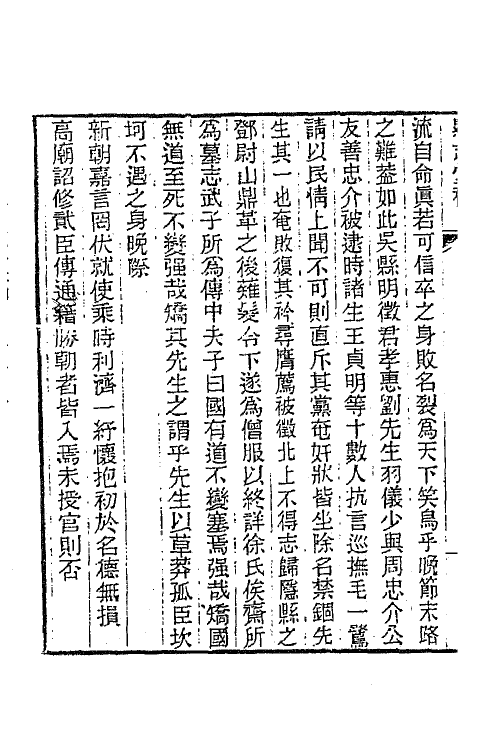 流自命眞若可信卒之身敗名裂爲天下笑烏乎晚節末路
之難葢如此吳縣明徵君孝惠劉先生羽儀少與周忠介公
友善忠介被逮時諸生王貞明等十數人抗言巡撫毛一鷺
請以民情上聞不可則直斥其黨奄奸狀皆坐除名禁錮先
生其一也奄敗復其衿尋膺薦被徵北上不得志歸隱縣之
鄧尉山鼎革之後薙髮令下遂爲僧服以終詳徐氏俟齋所
爲墓志武子所爲傳中夫子曰國有道不變塞焉强哉矯國
無道至死不變强哉矯其先生之謂乎先生以草莽孤臣坎
坷不遇之身晚際
新朝嘉言罔伏就使乘時利濟一紓懷抱初於名德無損
高廟詔修貳臣傳通籍勝朝者皆入焉未授官則否